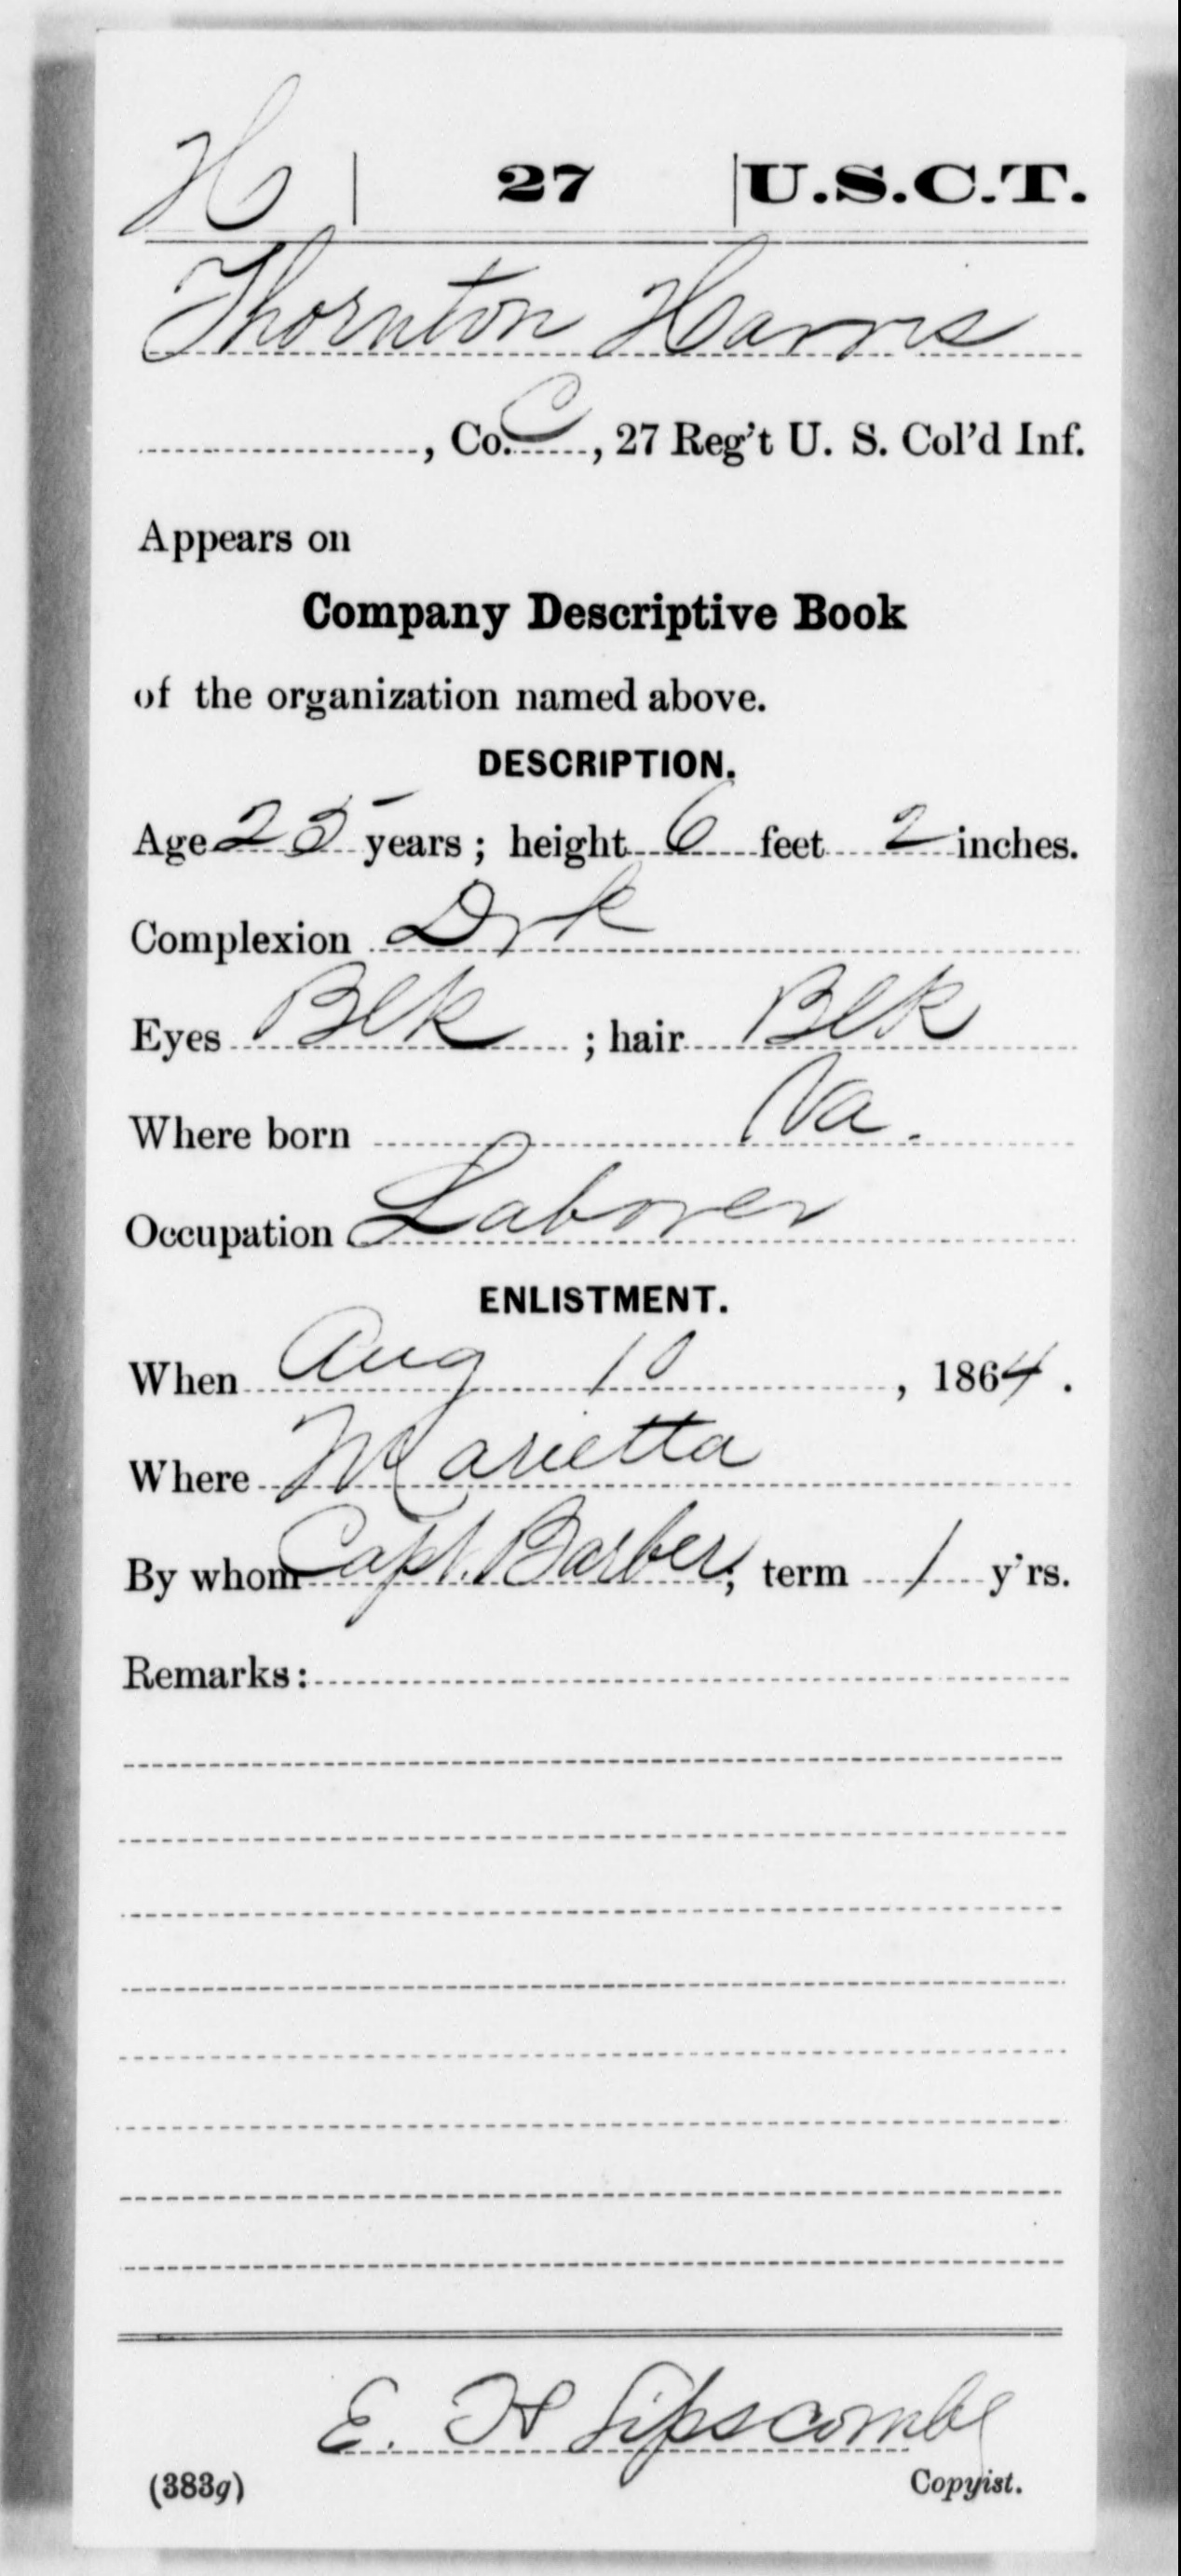 H | 27 | U.S.C.T.
Thornton Harris
, Co. C, 27 Reg't U. S. Col'd Inf.
Appears on
Company Descriptive Book
of the organization named above.
DESCRIPTION.
Age 25 years; height 6 feet 2 inches.
Complexion Drk
Eyes Blk; hair Blk
Where born Va.
Occupation Laborer
ENLISTMENT.
When Aug 10, 1864.
Where Marietta
By whom Capt. Barber; term 1 y'rs.
Remarks:
E. H Lipscombe
(383g) Copyist.